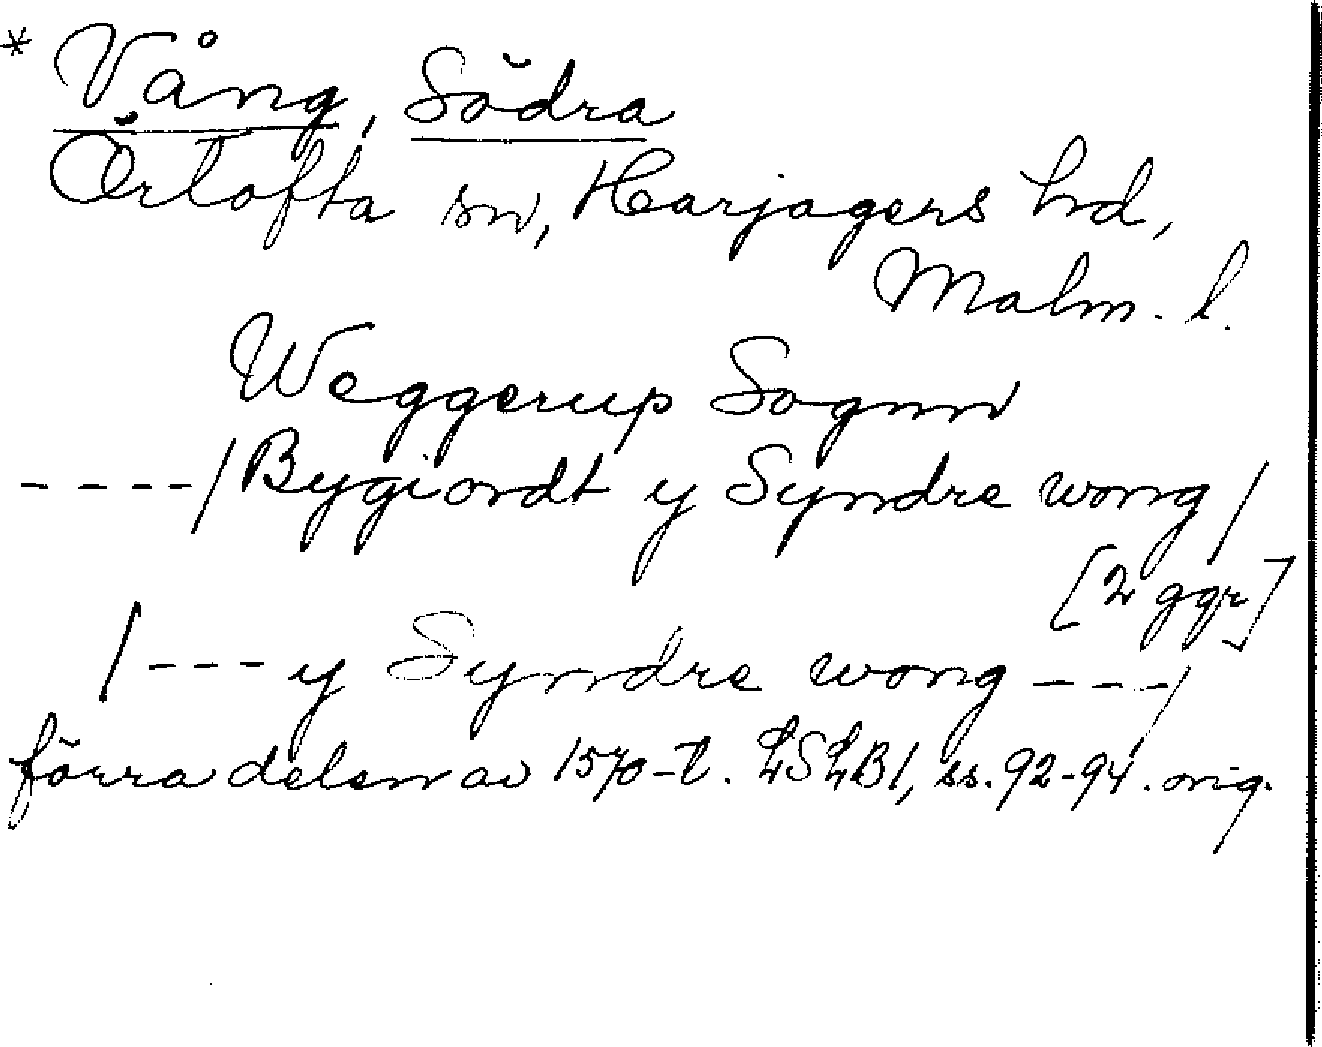 * Vång, Södra
Örtofta sn, Harjagers hd,
Malm. l.
Weggerup Sognn
----/Bygiordt y Syndre wong/
[2 ggr]
/---y Syndre wong---/
förra delen av 1570-t. LSLB1, ss. 92-94. orig.